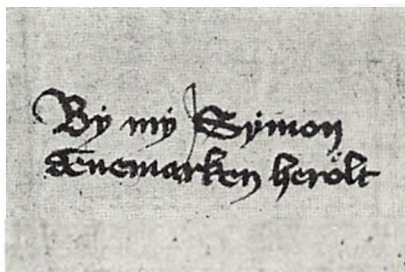 By my Symon
denemarken herolt